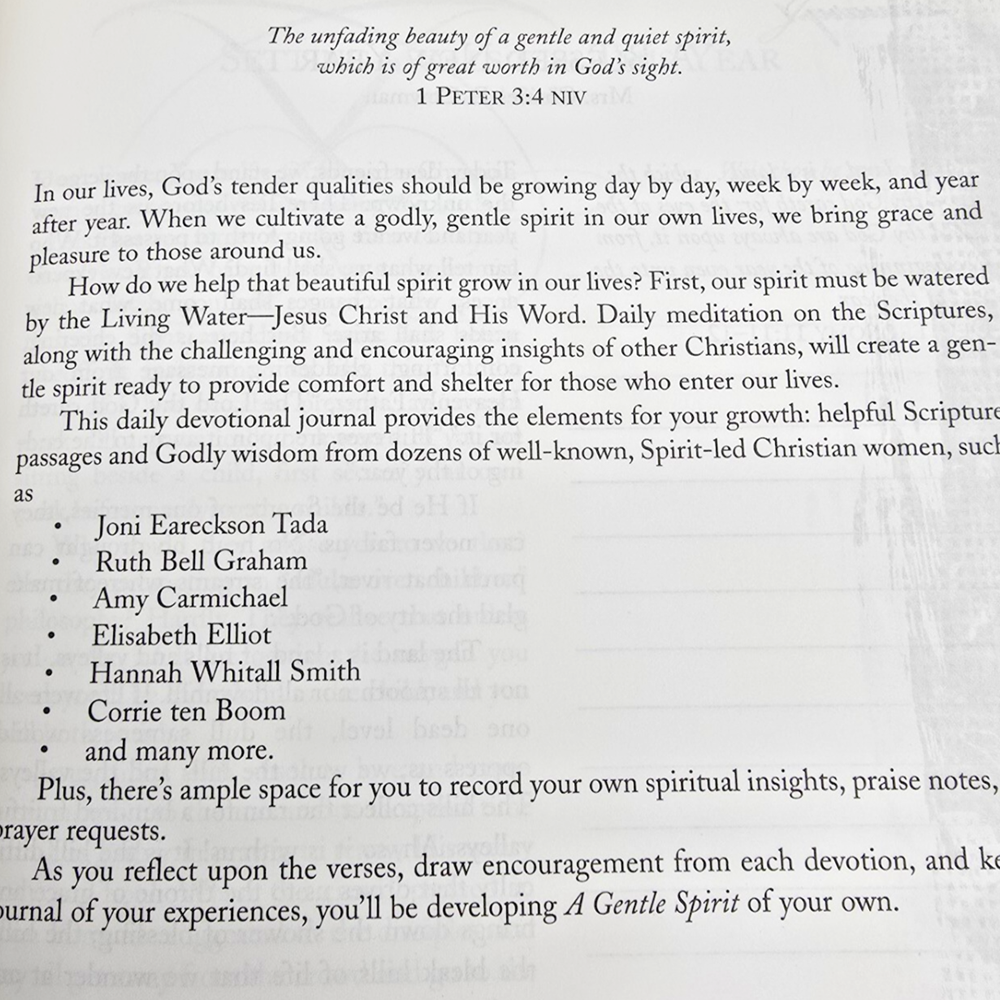 The unfading beauty of a gentle and quiet spirit,
which is of great worth in God's sight.
1 PETER 3:4 NIV
In our lives, God's tender qualities should be growing day by day, week by week, and year
after year. When we cultivate a godly, gentle spirit in our own lives, we bring grace and
pleasure to those around us.
How do we help that beautiful spirit grow in our lives? First, our spirit must be watered
by the Living Water—Jesus Christ and His Word. Daily meditation on the Scriptures,
along with the challenging and encouraging insights of other Christians, will create a gen-
tle spirit ready to provide comfort and shelter for those who enter our lives.
This daily devotional journal provides the elements for your growth: helpful Scripture
passages and Godly wisdom from dozens of well-known, Spirit-led Christian women, such
as
• Joni Eareckson Tada
• Ruth Bell Graham
• Amy Carmichael
• Elisabeth Elliot
• Hannah Whitall Smith
• Corrie ten Boom
• and many more.
Plus, there's ample space for you to record your own spiritual insights, praise notes,
rayer requests.
As you reflect upon the verses, draw encouragement from each devotion, and ke
ournal of your experiences, you'll be developing A Gentle Spirit of your own.